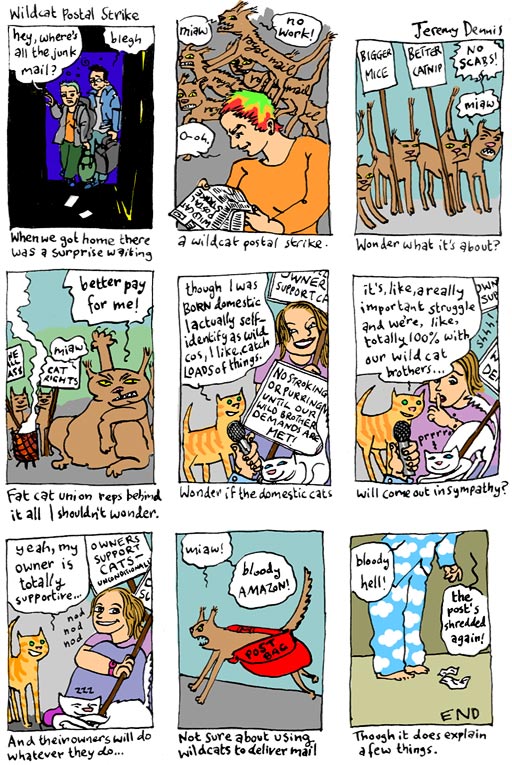 Wildcat Postal Strike
Jeremy Dennis
hey, where's
all the junk
mail?
blegh
When we got home there
was a surprise waiting
miaw
no
work!
O-oh.
a wildcat postal strike.
BIGGER
MICE
BETTER
CATNIP
NO
SCABS!
miaw
Wonder what it's about?
better pay
for me!
miaw
CAT
RIGHTS
Fat cat union reps behind
it all I shouldn't wonder.
though I was
BORN domestic
I actually self-
identify as wild
cos, I like, catch
LOADS of things.
OWNER
SUPPORT CA
NO STROKING
OR PURRING
UNTIL OUR
WILD BROTHER
DEMANDS ARE
MET!
Wonder if the domestic cats
it's, like, a really
important struggle
and we're, like,
totally 100% with
our wild cat
brothers...
prrrrr
Will come out in sympathy?
yeah, my
owner is
totally
supportive...
OWNERS
SUPPORT
CATS-
UNCONDITIONALLY
nod
nod
nod
zzz
And their owners will do
whatever they do...
miaw!
bloody
AMAZON!
POST
BAG
Not sure about using
wildcats to deliver mail
bloody
hell!
the
post's
shredded
again!
END
Though it does explain
a few things.